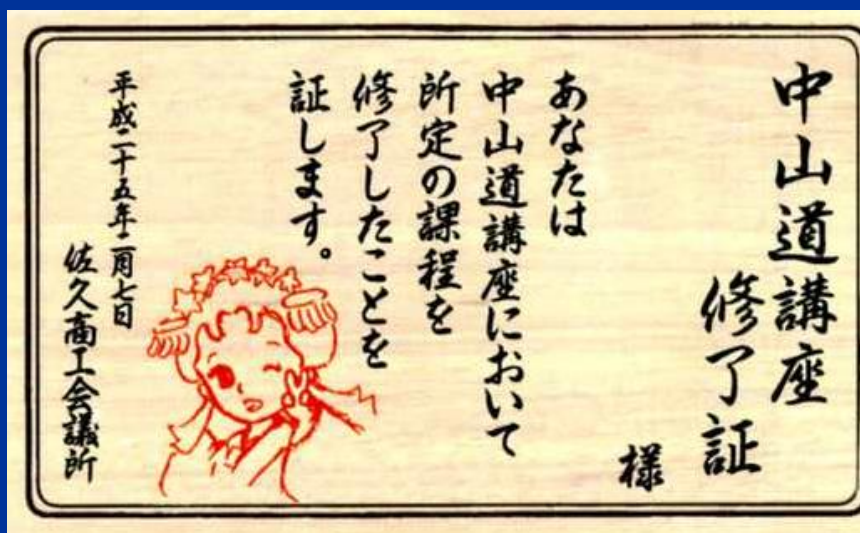 中山道講座
修了証
様
あなたは
中山道講座において
所定の課程を
修了したことを
証します。
平成二十五年二月七日
佐久商工会議所